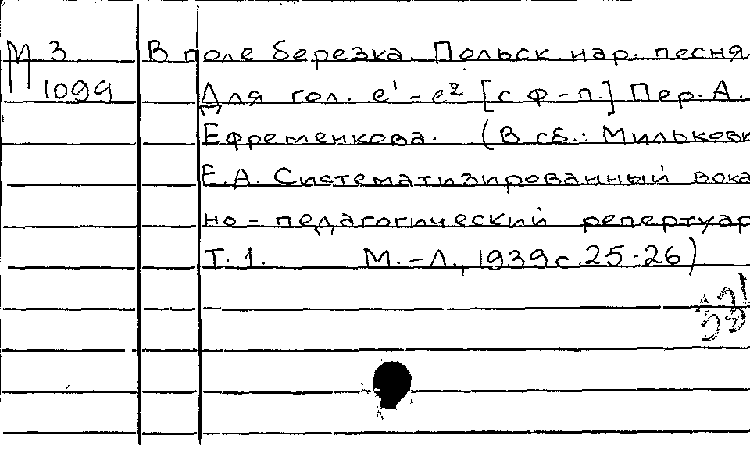 М 3 В поле березка. Польск нар. песня
1099 Для гол. e¹-e² [с ф-п.] Пер. А.
Ефременкова. (В сб.: Мильков
Е.А. Систематизированный вока
но-педагогический репертуар
Т. 1. М.-Л., 1939 с. 25-26)